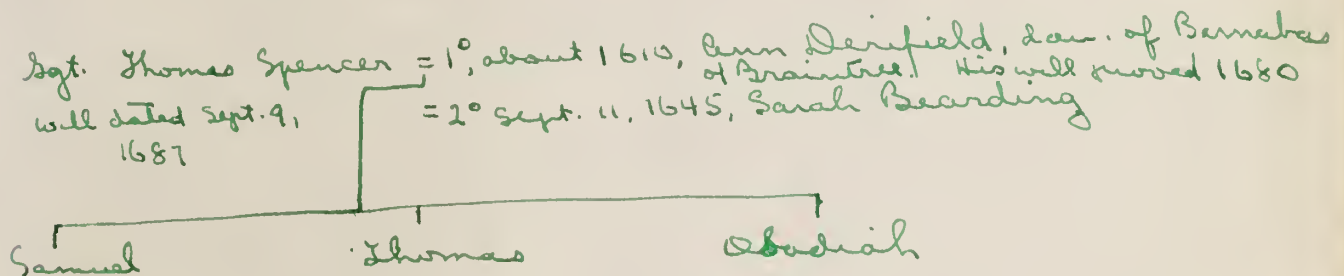 Sgt. Thomas Spencer = 1°, about 1610, Ann Derifield, dau. of Barnabas
of Braintree. His will proved 1680
will dated Sept. 9, = 2° Sept. 11, 1645, Sarah Bearding
1687
Samuel Thomas Obadiah